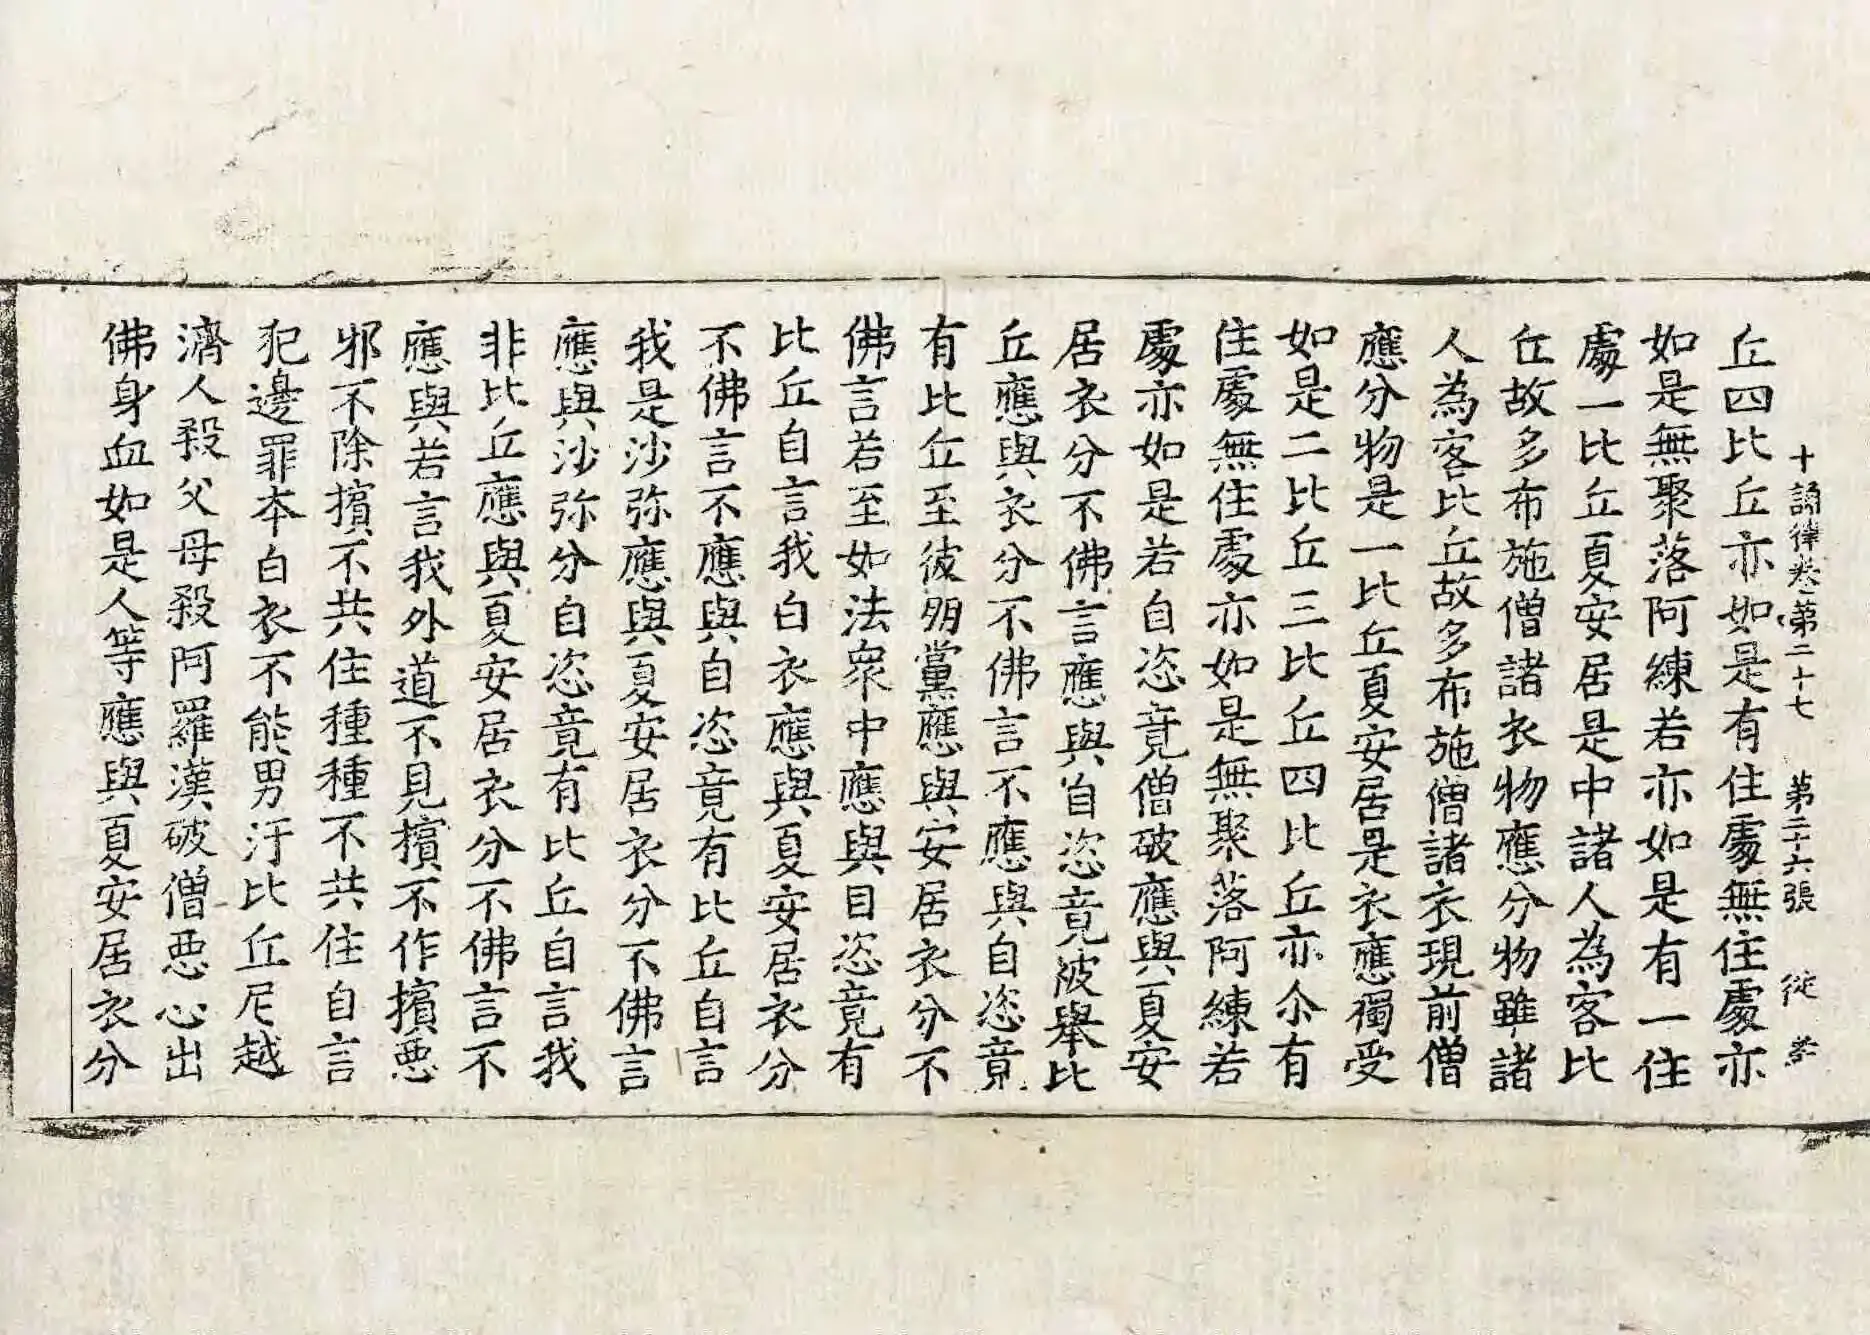 十誦律卷第二十七　第二十六張　從
丘四比丘亦如是有住處無住處亦
如是無聚落阿練若亦如是有一住
處一比丘夏安居是中諸人為客比
丘故多布施僧諸衣物應分物雖諸
人為客比丘故多布施僧諸衣現前僧
應分物是一比丘夏安居是衣應獨受
如是二比丘三比丘四比丘亦尒有
住處無住處亦如是無聚落阿練若
處亦如是若自恣竟僧破應與夏安
居衣分不佛言應與自恣竟被舉比
丘應與衣分不佛言不應與自恣竟
有比丘至彼朋黨應與安居衣分不
佛言若至如法衆中應與目恣竟有
比丘自言我白衣應與夏安居衣分
不佛言不應與自恣竟有比丘自言
我是沙弥應與夏安居衣分不佛言
應與沙弥分自恣竟有比丘自言我
非比丘應與夏安居衣分不佛言不
應與若言我外道不見擯不作擯惡
邪不除擯不共住種種不共住自言
犯邊罪本白衣不能男汙比丘尼越
濟人殺父母殺阿羅漢破僧惡心出
佛身血如是人等應與夏安居衣分